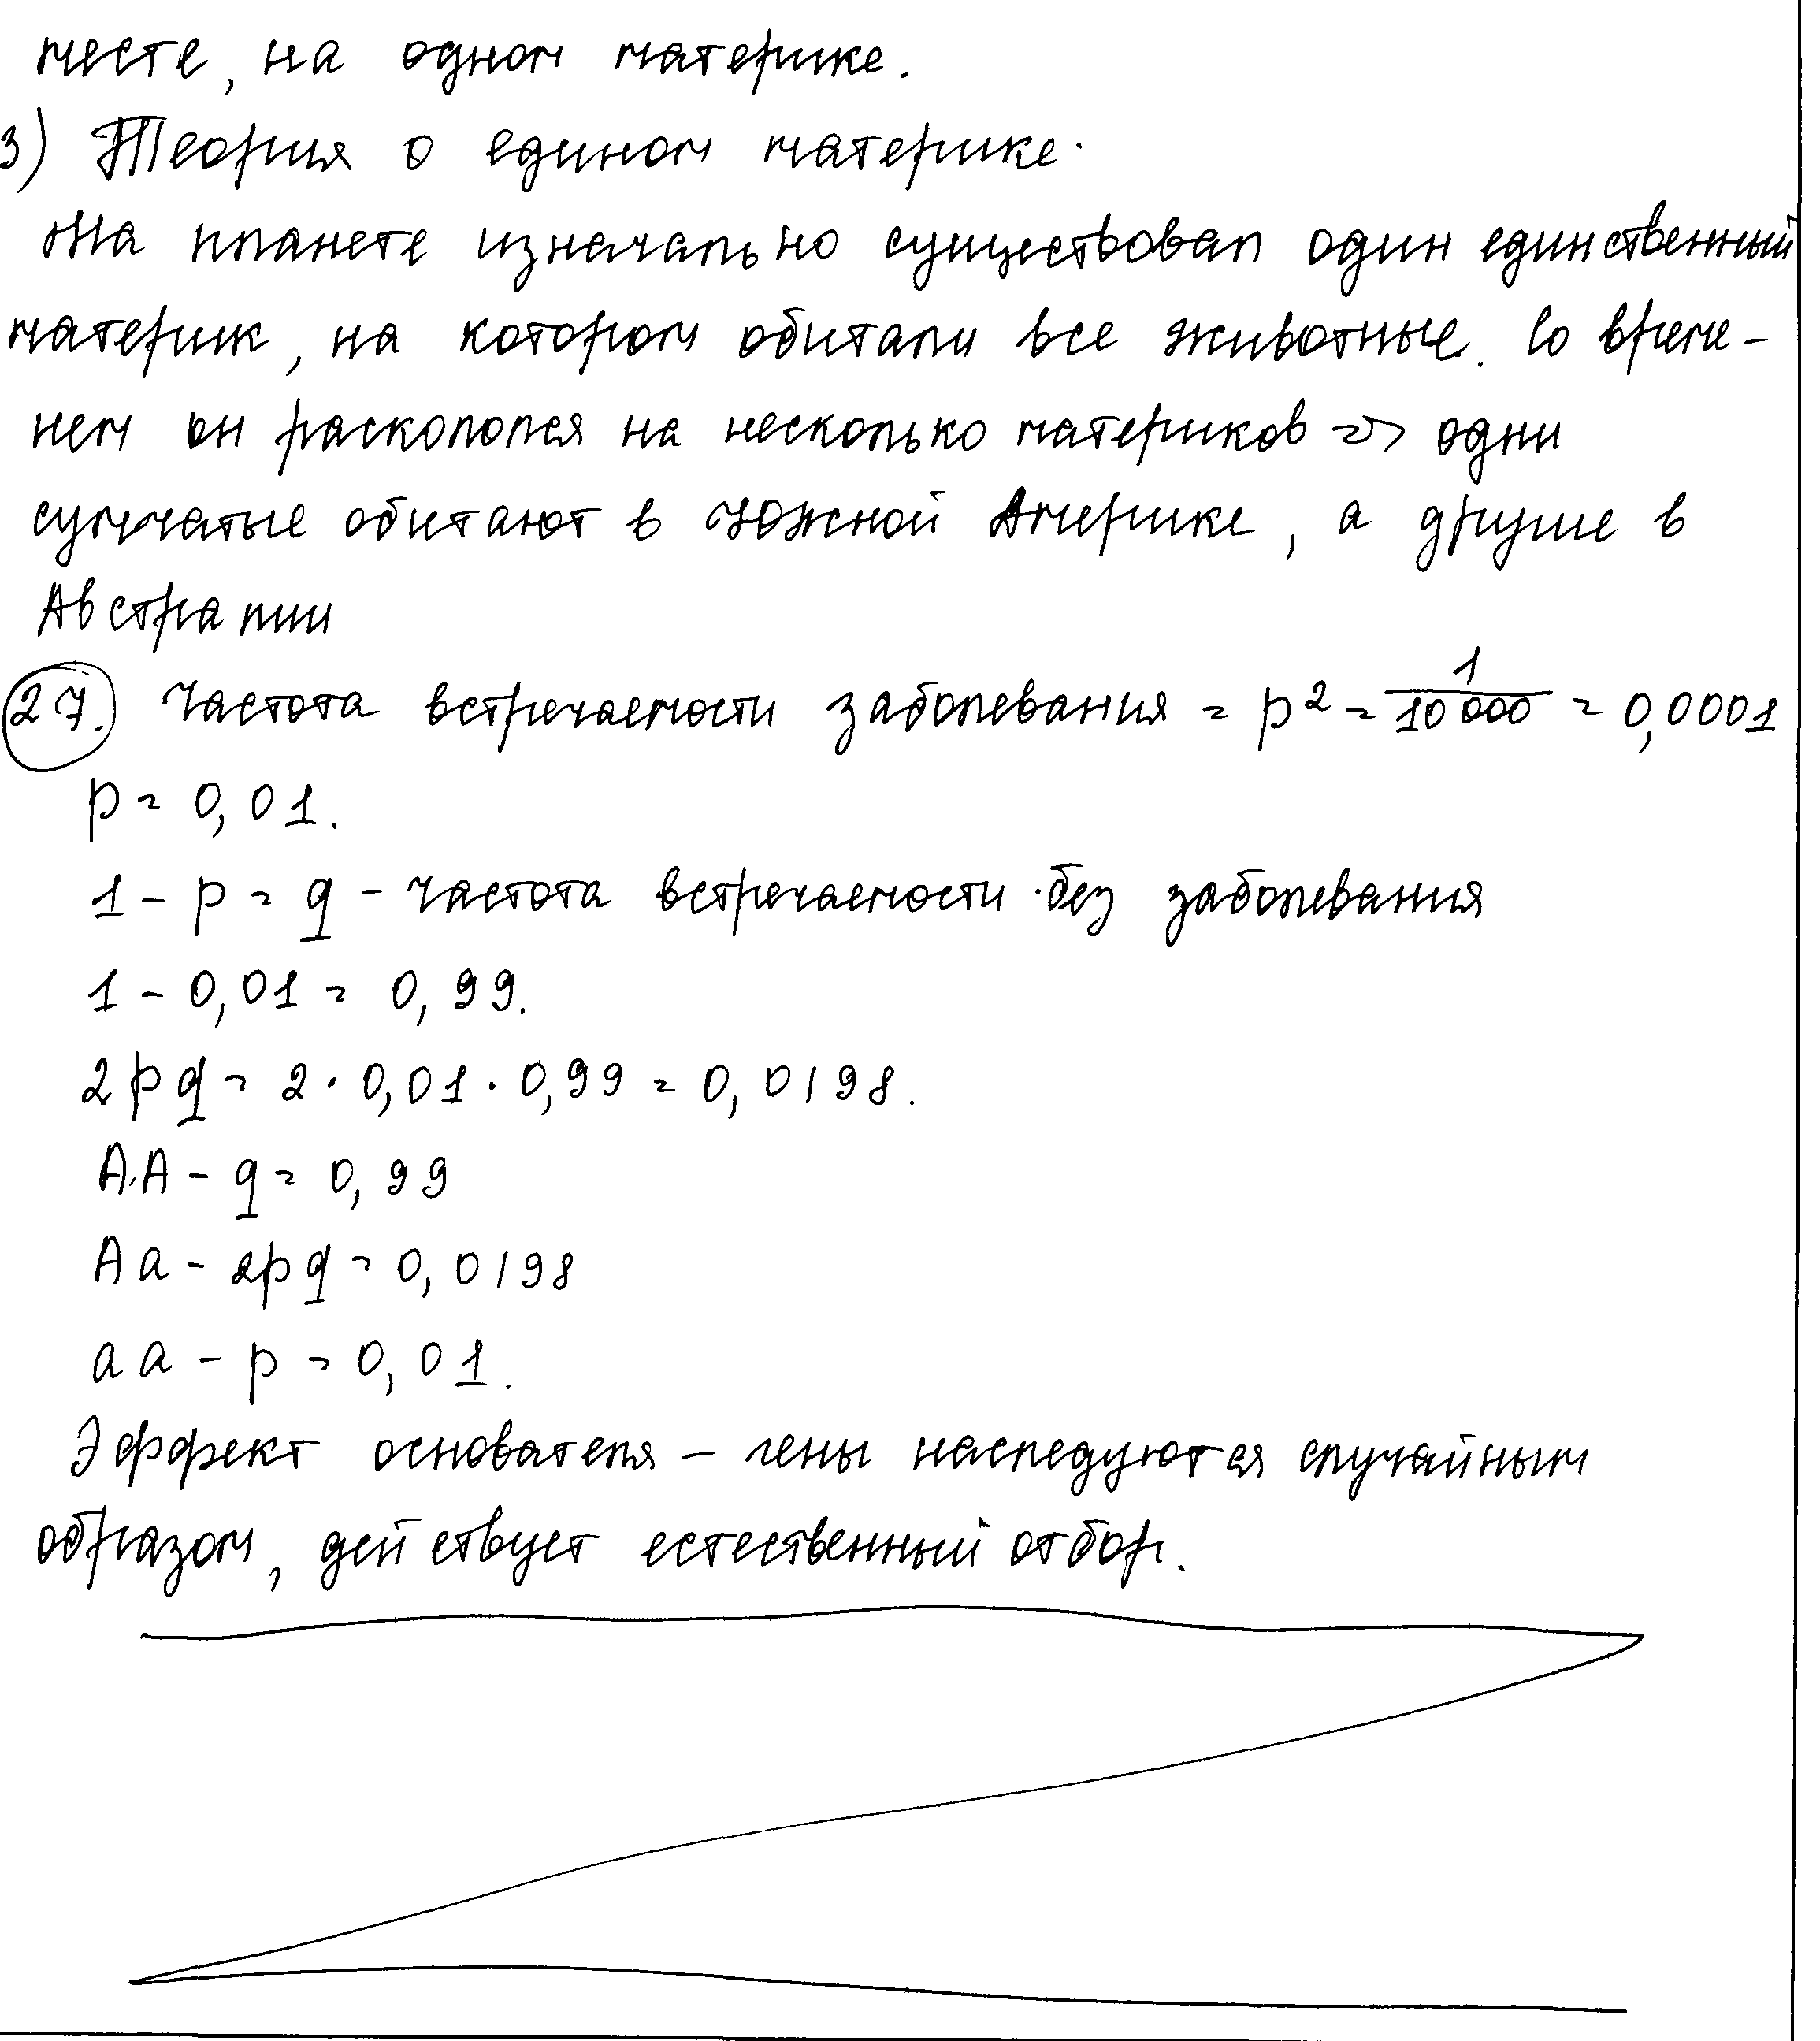 месте, на одном материке.
3) Теория о едином материке.
На планете изначально существовал один единственный
материк, на котором обитали все животные. Со време-
нем он раскололся на несколько материков => одни
сумчатые обитают в Южной Америке, а другие в
Австралии
27. Частота встречаемости заболевания = p² = 1/10000 = 0,0001
p = 0,01.
1 - p = q - частота встречаемости без заболевания
1 - 0,01 = 0,99.
2pq = 2 · 0,01 · 0,99 = 0,0198.
AA - q = 0,99
Aa - 2pq = 0,0198
aa - p = 0,01.
Эффект основателя - гены наследуются случайным
образом, действует естественный отбор.